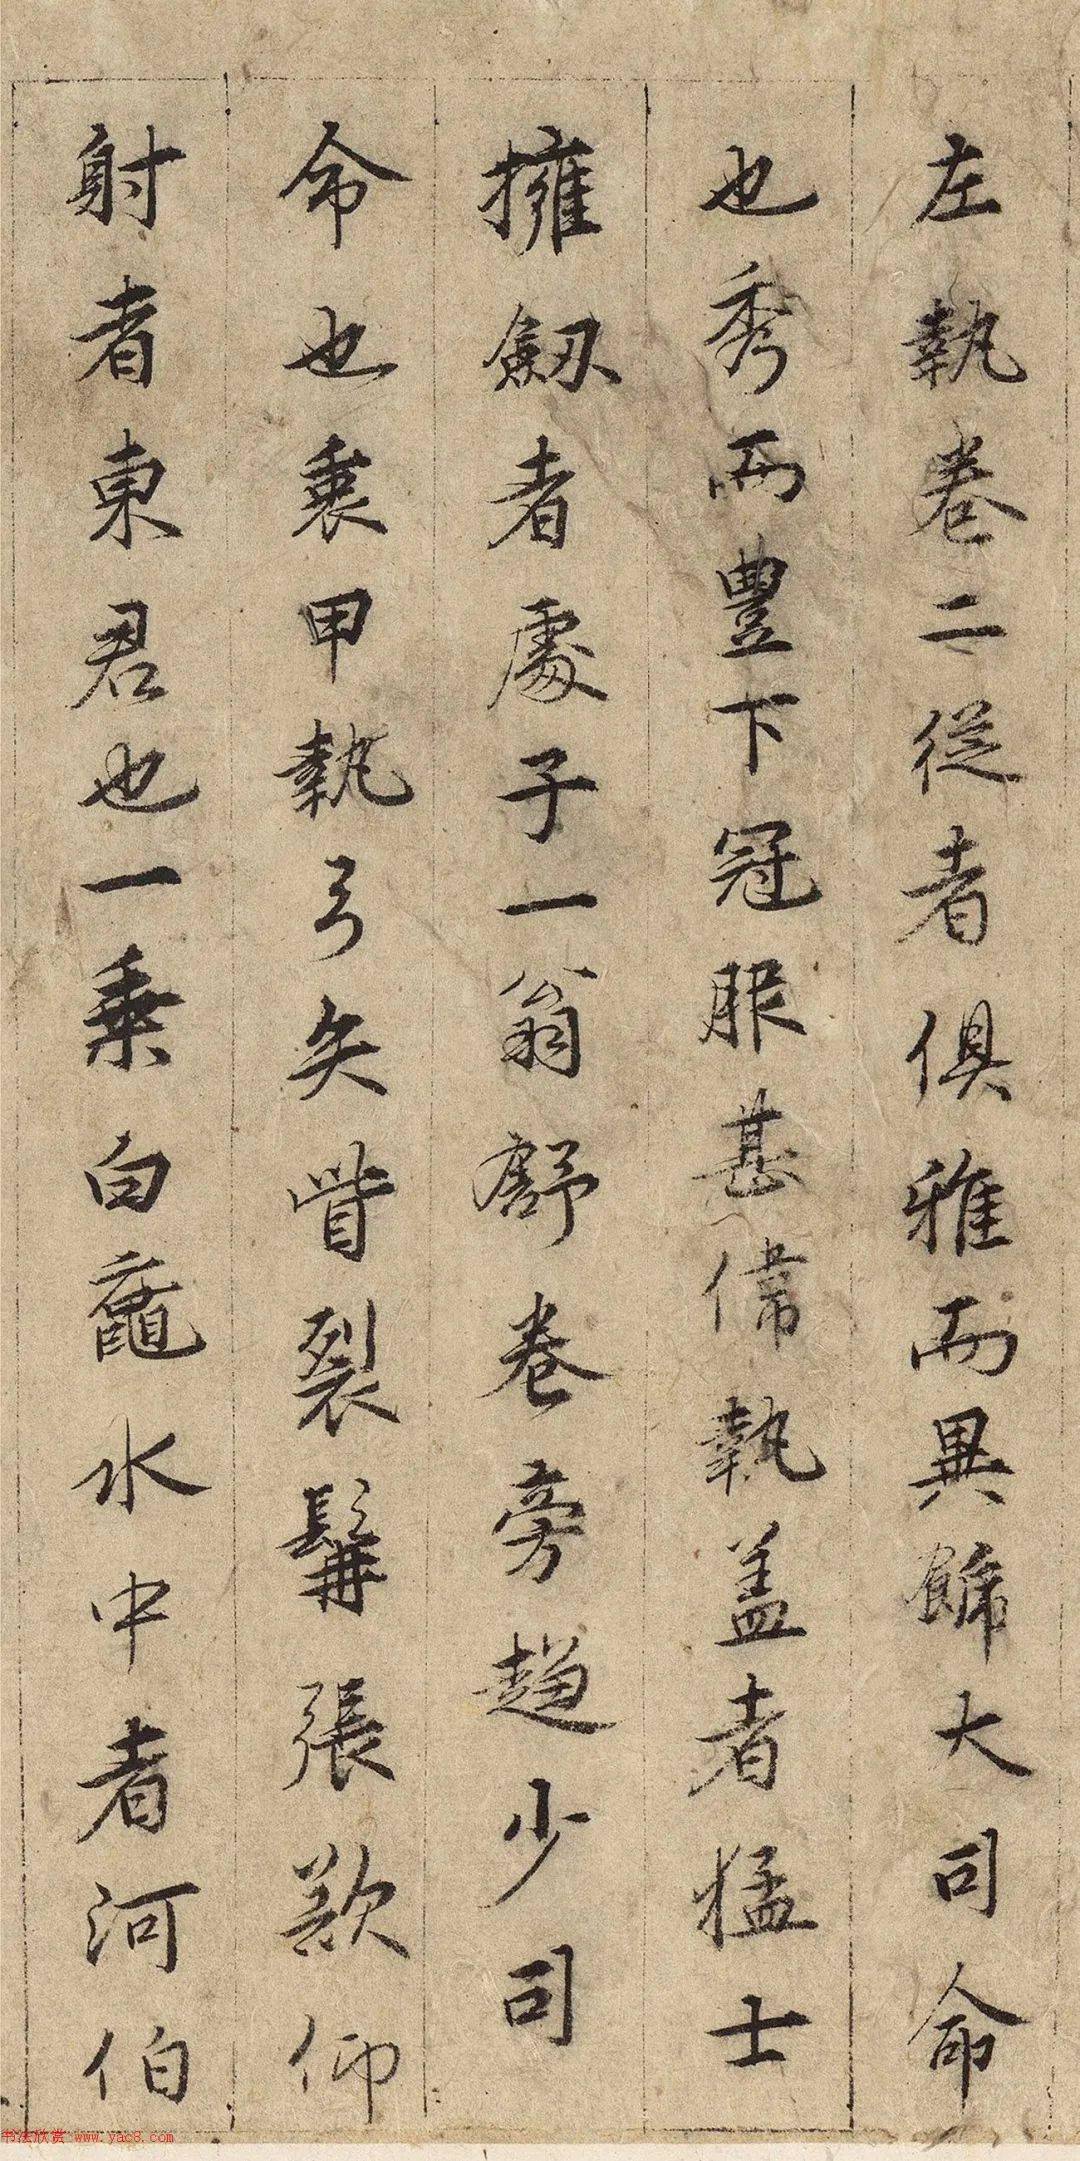 左執卷二從者俱雅而異飾大司命
也秀而豊下冠服甚偉執盖者猛士
擁劔者處子一翁舒卷旁趨少司
命也衷甲執弓矢眥裂髯張欲仰
射者東君也一乗白黿水中者河伯
书法欣赏 www.yac8.com